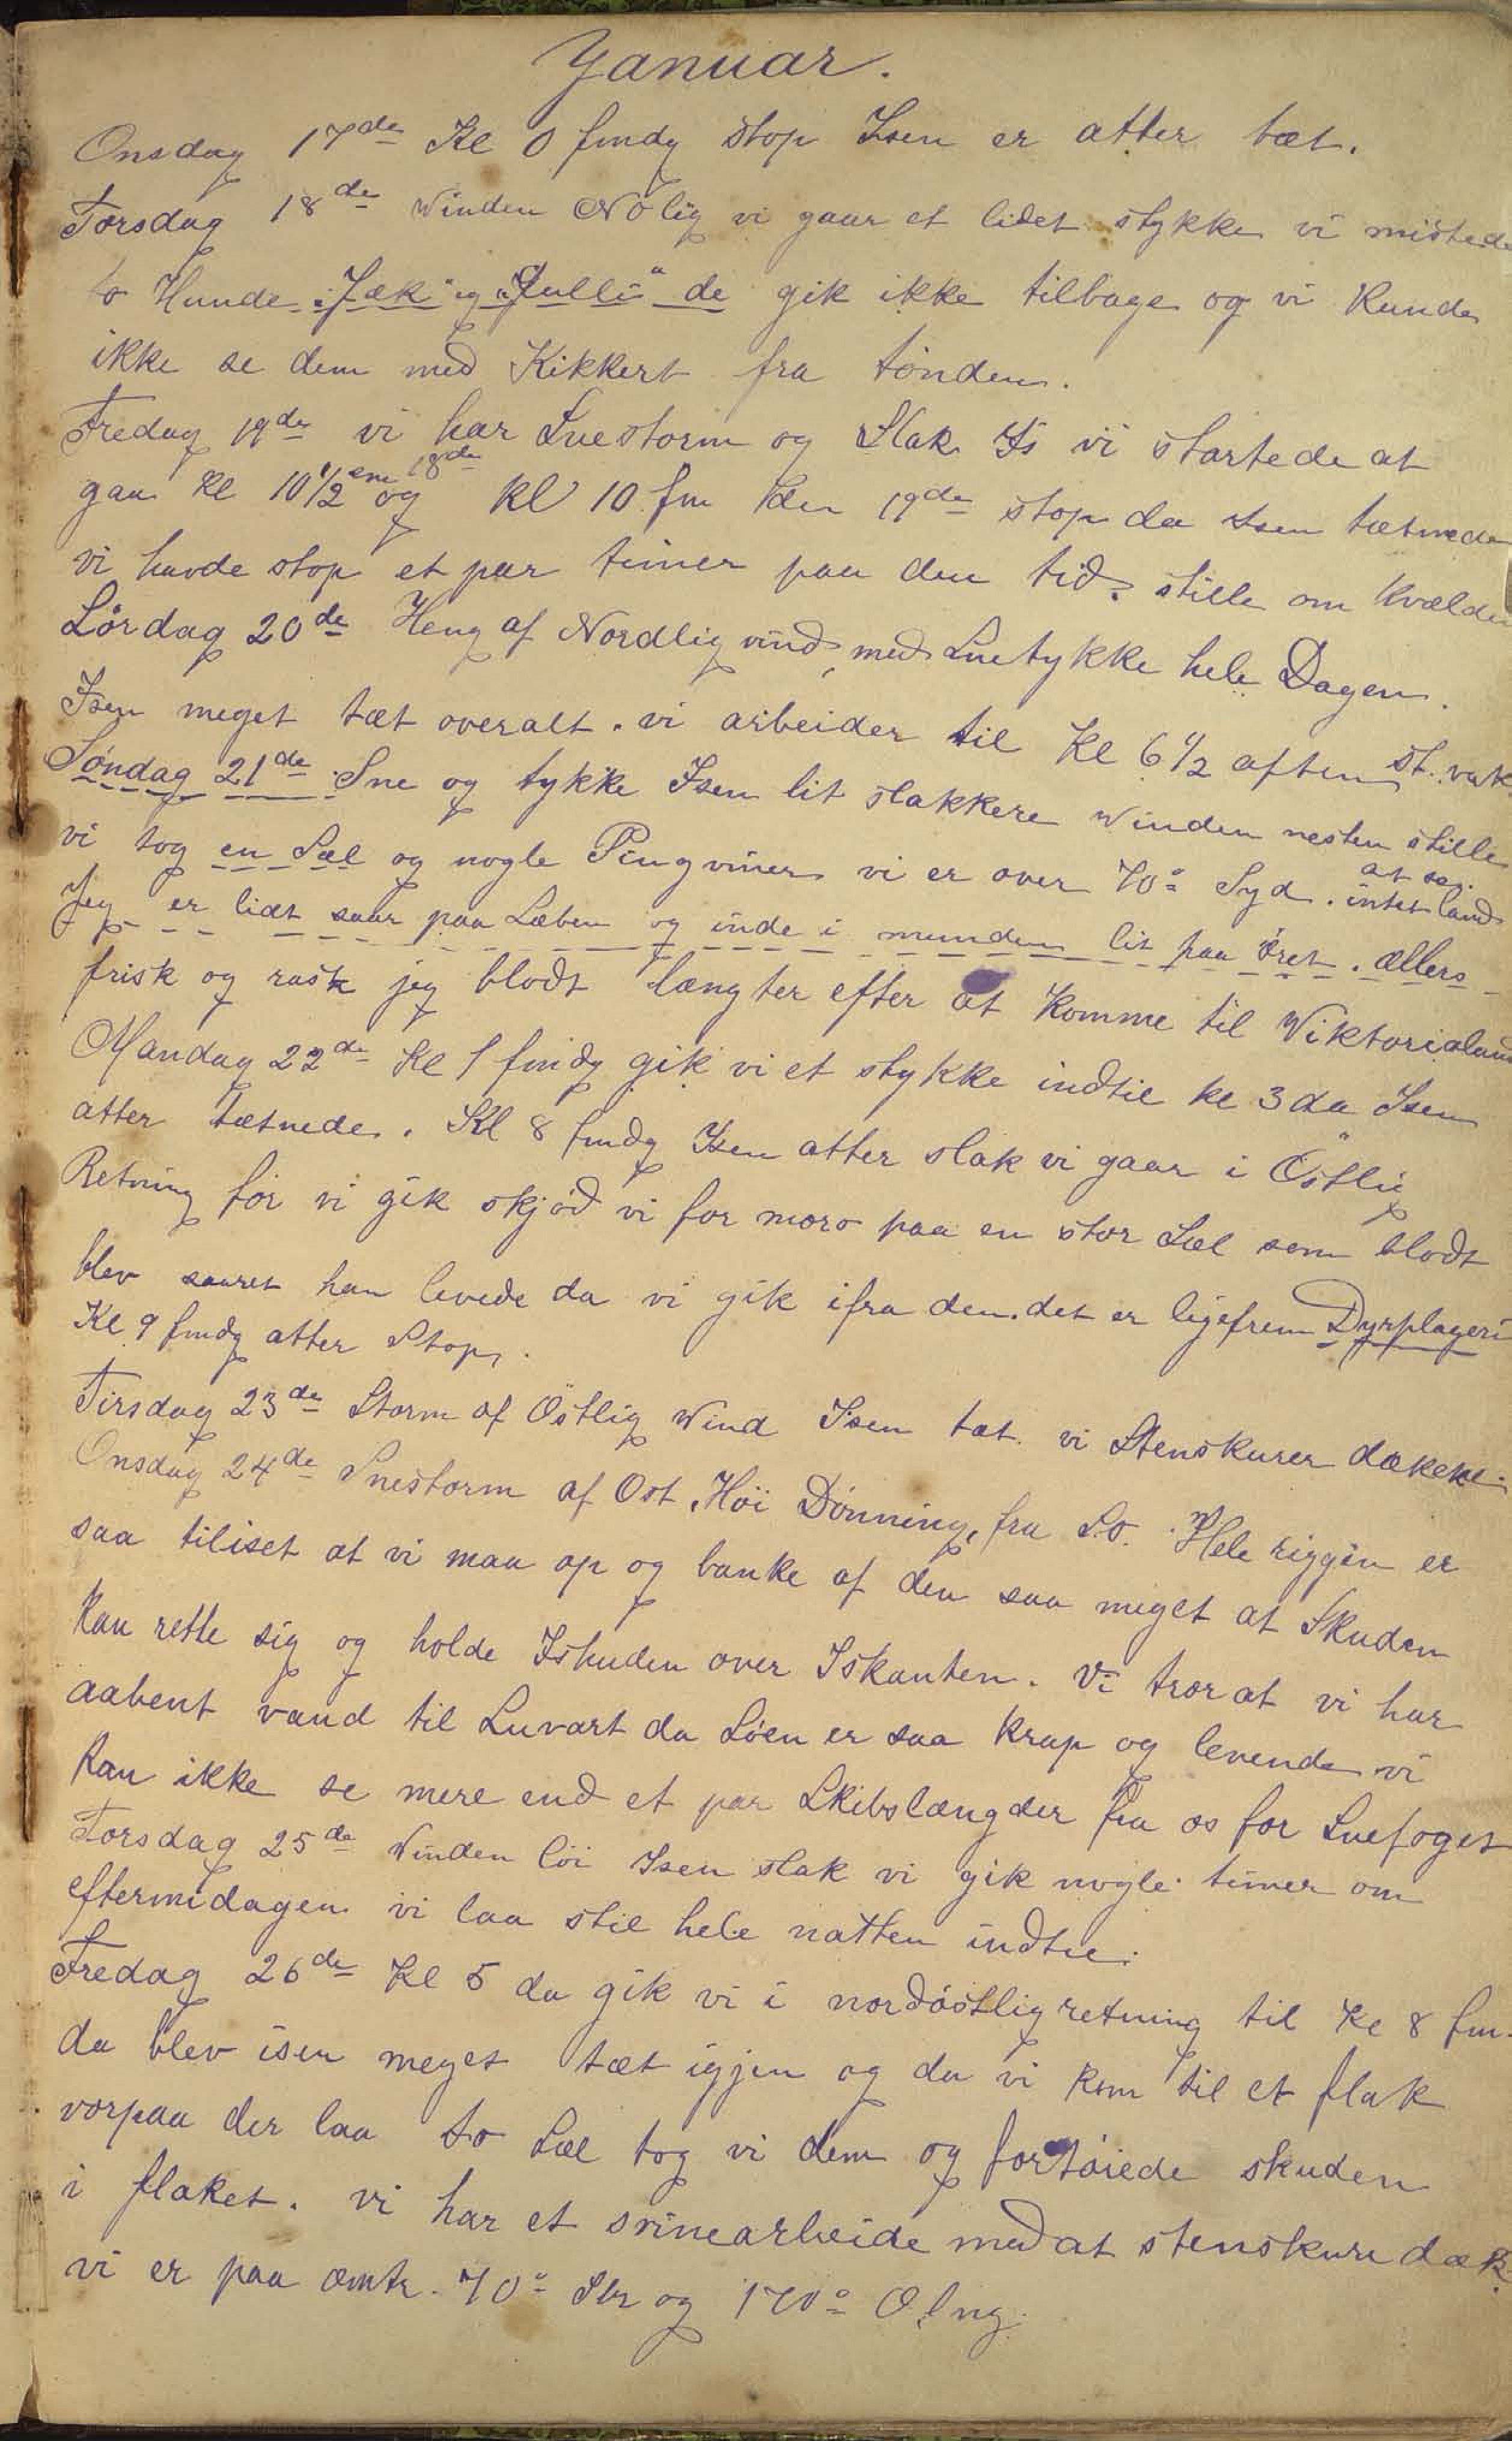 Januar.
Onsdag 17de Kl 0 fmdg stop Isen er atter tæt.
Torsdag 18de Winden NOlig vi gaar et lidet stykke vi mistede
to Hunde "Jæk" og "Julli" de gik ikke tilbage og vi Kunde
ikke se dem med Kikkert fra tønden.
Fredag 19de vi har Snestorm og Slak Is vi startede at
gaa kl 10 1/2 em 18de og kl 10 fm den 19de stop da Isen tætnede
vi havde stop et par timer paa den tid. stille om kvælden
Lørdag 20de Heng af Nordlig vind med Snetykke hele Dagen.
Isen meget tæt overalt. vi arbeider til Kl 6 1/2 aften st. vakt
Søndag 21de Sne og tykke Isen lit slakkere Winden nesten stille
vi tog en Sæl og nogle Pingviner vi er over 70° Syd. intet land at se.
Jeg er lidt saar paa Læben og inde i munden lit paa øret. ællers
frisk og rask jeg blodt længter efter at Komme til Wiktorialand
Mandag 22de Kl 1 fmdg gik vi et stykke indtil kl 3 da Isen
atter tætnede. Kl 8 fmdg Isen atter slak vi gaar i Östlig
Retning før vi gik skjød vi for moro paa en stor Sæl som blodt
blev saaret han levede da vi gik ifra den. det er ligefrem Dyrplageri
Kl 9 fmdg atter Stop.
Tirsdag 23de Storm af Östlig Wind Isen tæt. vi Stenskurer dækket
Onsdag 24de Snestorm af Ost. Höi Dønning, fra S.O. Hele riggen er
saa tiliset at vi maa op og banke af den saa meget at Skuden
kan rette sig og holde Ishuden over Iskanten. Vi tror at vi har
aabent vand til Luvart da Søen er saa krap og levende vi
kan ikke se mere end et par Skibslængder fra os for Snefoget
Torsdag 25de Winden løi Isen slak vi gik nogle timer om
eftermidagen vi laa stil hele natten indtil.
Fredag 26de Kl 5 da gik vi i nordöstlig retning til Kl 8 fm.
da blev isen meget tæt igjen og da vi kom til et flak
vorpaa der laa to Sæl tog vi dem og fortøiede skuden
i flaket. vi har et svinearbeide med at stenskure dæk.
vi er paa omtr. 70° Sbr og 170° O lng.